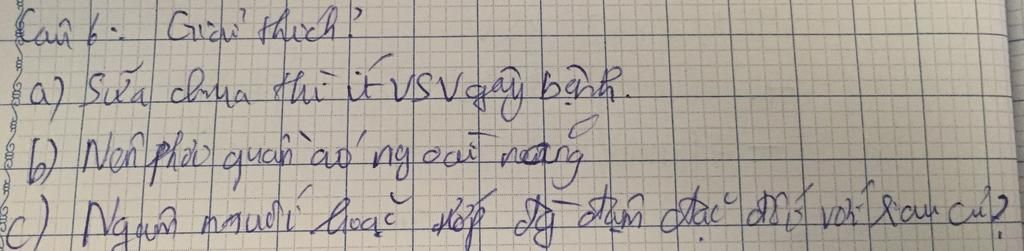 Câu 6: Giải thích?
a) Sữa chua thì ít VSV gây bệnh.
b) Nên phơi quần áo ngoài nắng
c) Ngâm muối hoặc đậm đặc đối với rau củ?